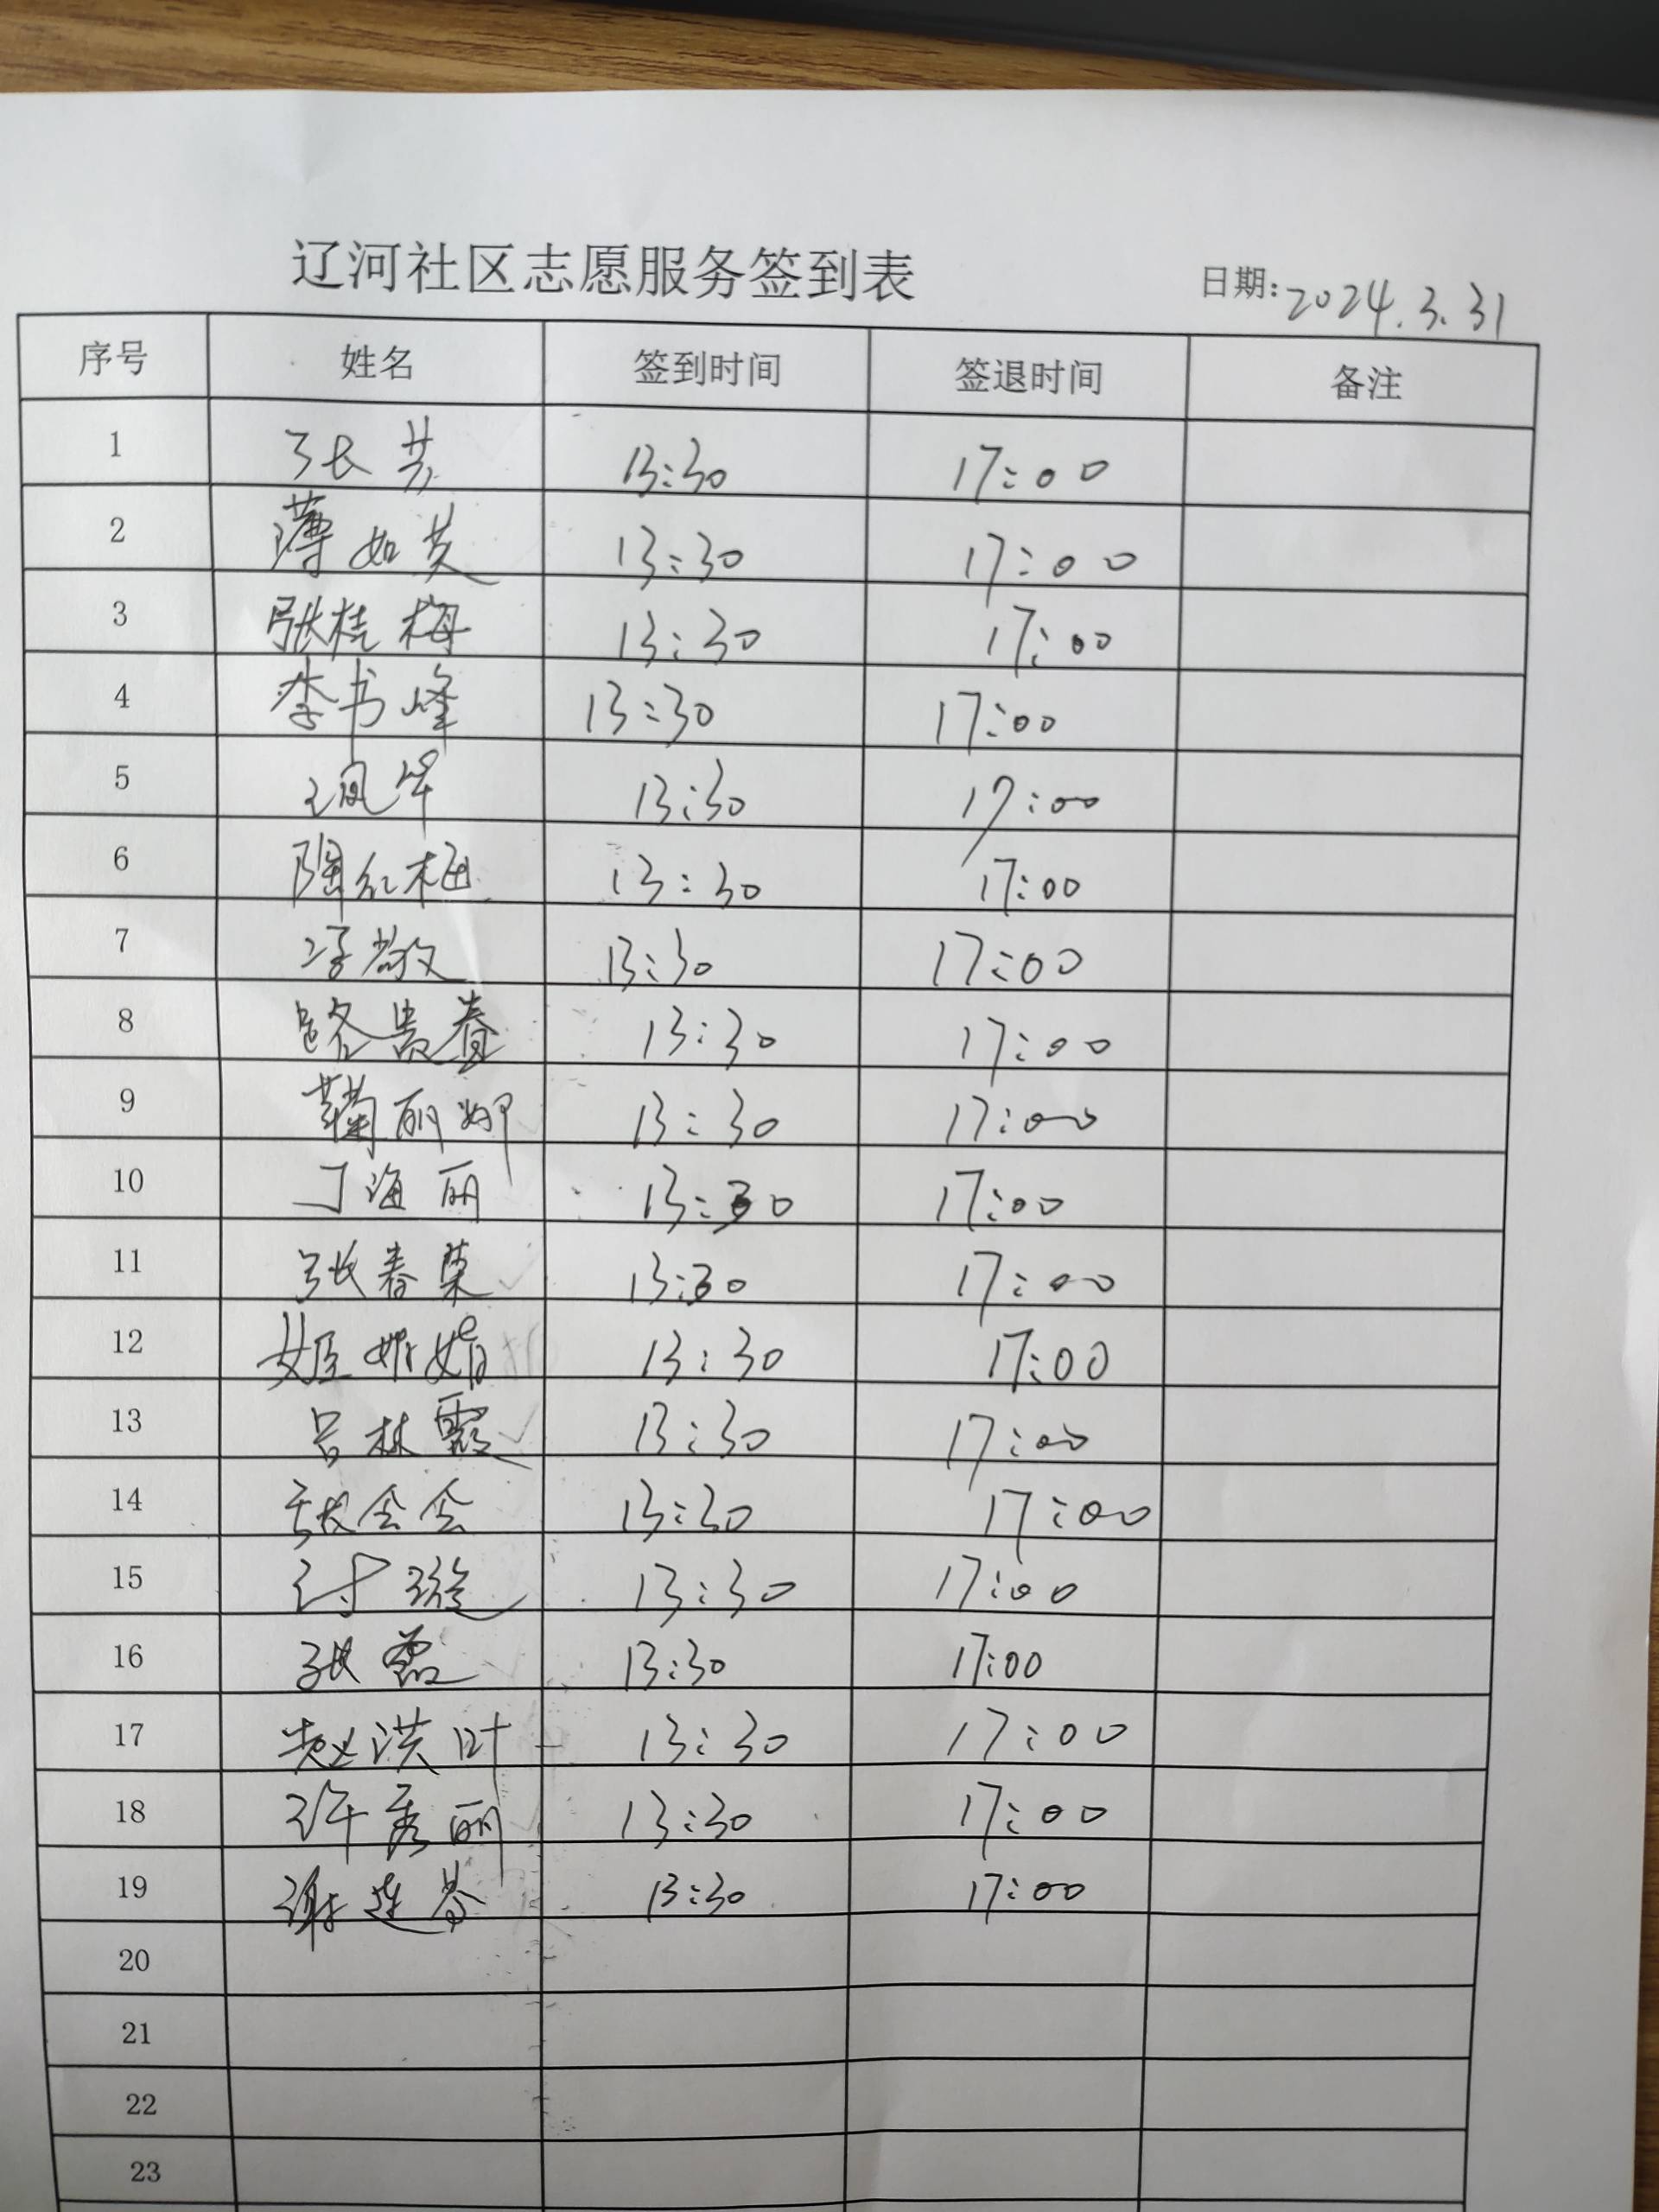 辽河社区志愿服务签到表 日期:2024.3.31
序号 姓名 签到时间 签退时间 备注
1 张芸 13:30 17:00
2 薄如英 13:30 17:00
3 张桂梅 13:30 17:00
4 李书峰 13:30 17:00
5 王凤华 13:30 17:00
6 陶红梅 13:30 17:00
7 李敬 13:30 17:00
8 路贵春 13:30 17:00
9 丽娜 13:30 17:00
10 丁海丽 13:30 17:00
11 张春荣 13:30 17:00
12 姬娟娟 13:30 17:00
13 吕林霞 13:30 17:00
14 会会 13:30 17:00
15 13:30 17:00
16 张磊 13:30 17:00
17 赵洪叶 13:30 17:00
18 许秀丽 13:30 17:00
19 谢莲芬 13:30 17:00
20
21
22
23